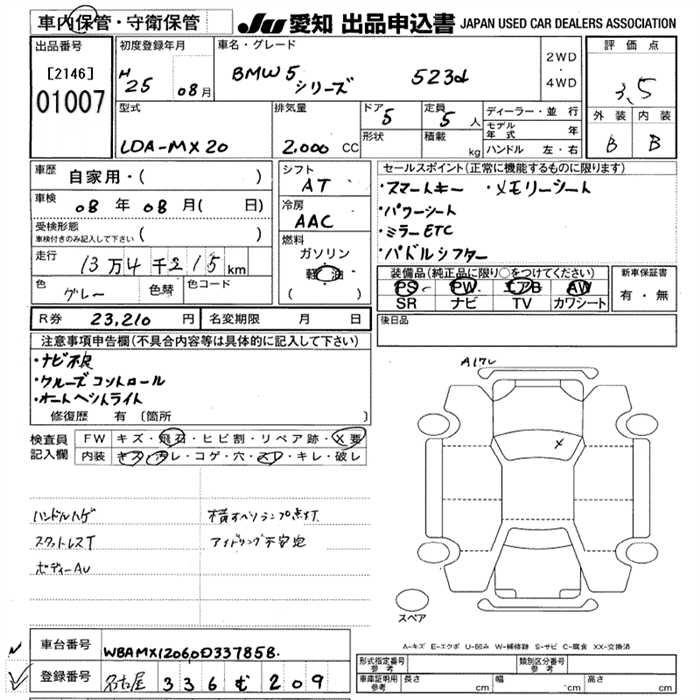 車内保管・守衛保管
JU 愛知 出品申込書 JAPAN USED CAR DEALERS ASSOCIATION
出品番号
[2146]
01007
初度登録年月
H25 08月
車名・グレード
BMW5シリーズ 523d
2WD
4WD
評価点
3.5
外装 内装
B B
型式
LDA-MX20
排気量
2.000 CC
ドア 5
定員 5 人
形状
積載 kg
ディーラー・並行
モデル年式 年
ハンドル 左・右
車歴
自家用・( )
車検
08年08月( 日)
受検形態
車検付きのみ記入して下さい ( )
走行
13万4千215km
色 グレー
色替
色コード
シフト
AT
冷房
AAC
燃料
ガソリン
軽油
( )
セールスポイント(正常に機能するものに限ります)
・スマートキー ・メモリーシート
・パワーシート
・ミラーETC
・パドルシフター
装備品(純正品に限り○をつけてください)
PS PW エアB AW
SR ナビ TV カワシート
新車保証書
有・無
後日品
R券 23,210 円
名変期限 月 日
注意事項申告欄(不具合内容等は具体的に記入して下さい)
・ナビ不良
・クルーズコントロール
・オートヘットライト
修復歴 有 〔箇所 〕
検査員記入欄
FW キズ・飛石・ヒビ割・リペア跡・X要
内装 キズ・汚レ・コゲ・穴・スレ・キレ・破レ
ハンドルハゲ
横すべりランプ点灯
スタットレスT
アイドリング不安定
ボディーAU
A17L
X
スペア
A-キズ E-エクボ U-凹み W-補修跡 S-サビ C-腐食 XX-交換済
車台番号 WBAMX12060D33785B.
登録番号 名古屋 336 む 209
形式指定番号 参考
類別区分番号 参考
車庫証明用 参考
長さ cm
幅 cm
高さ cm